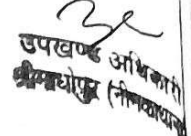 उपखण्ड अधिकारी
श्रीमाधोपुर (नीमकाथाना